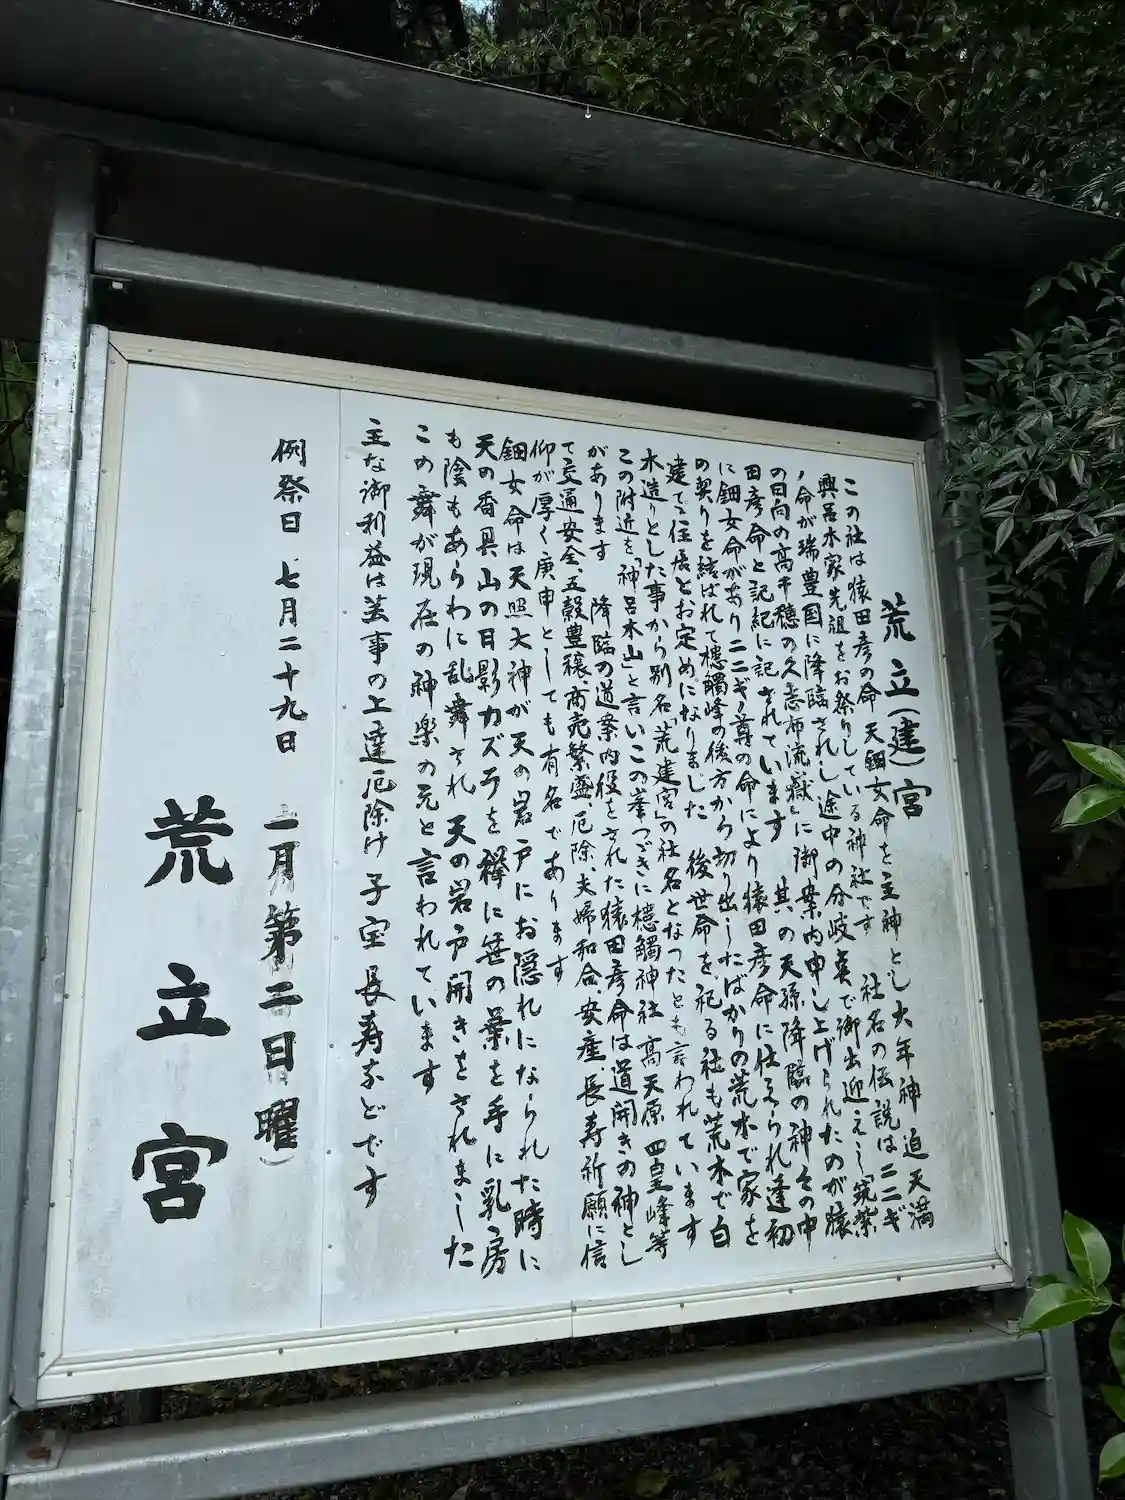 荒立(建)宮
この社は猿田彦の命 天鈿女命を主神とし大年神 迫天満
興呂木家先祖をお祭りしている神社です 社名の伝説はニニギ
ノ命が瑞豊国に降臨されし途中の分岐点で御出迎えし「筑紫
の日向の高千穂の久志布流嶽」に御案内申し上げられたのが猿
田彦命と記紀に記されています 其の天孫降臨の神その中
に鈿女命があり ニニギノ尊の命により猿田彦命に仕えられ逢初
の契りを結ばれて槵觸峰の後方から切り出したばかりの荒木で家を
建てて住居とお定めになりました 後世命を祀る社も荒木で白
木造りとした事から別名「荒建宮」の社名となったとも言われています
この附近を「神呂木山」と言いこの峯つづきに槵觸神社 高天原 四皇峰等
があります 降臨の道案内役をされた猿田彦命は道開きの神とし
て交通安全、五穀豊穣、商売繁盛、厄除、夫婦和合、安産、長寿祈願に信
仰が厚く庚申としても有名であります
鈿女命は天照大神が天の岩戸にお隠れになられた時に
天の香具山の日影カズラを襷に笹の葉を手に乳房
も陰もあらわに乱舞され 天の岩戸開きをされました
この舞が現在の神楽の元と言われています
主な御利益は芸事の上達厄除け 子宝 長寿などです
例祭日 七月二十九日 一月第二日曜)
荒立宮